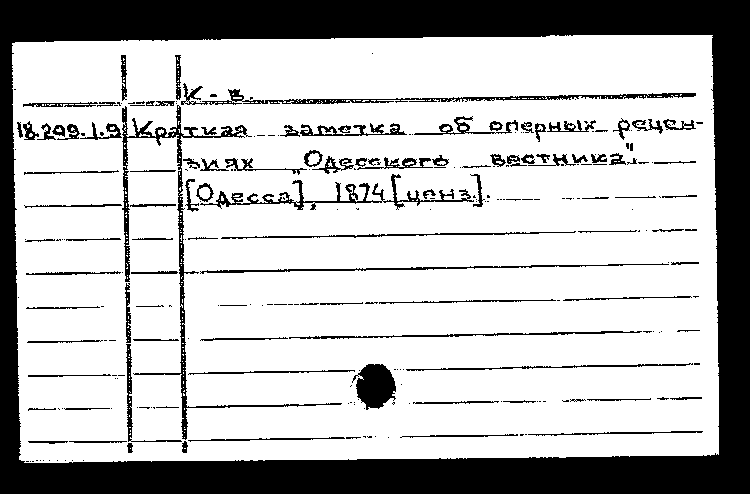 К-в.
18.209.1.9 Краткая заметка об оперных рецен-
зиях „Одесского вестника".
[Одесса], 1874 [ценз].